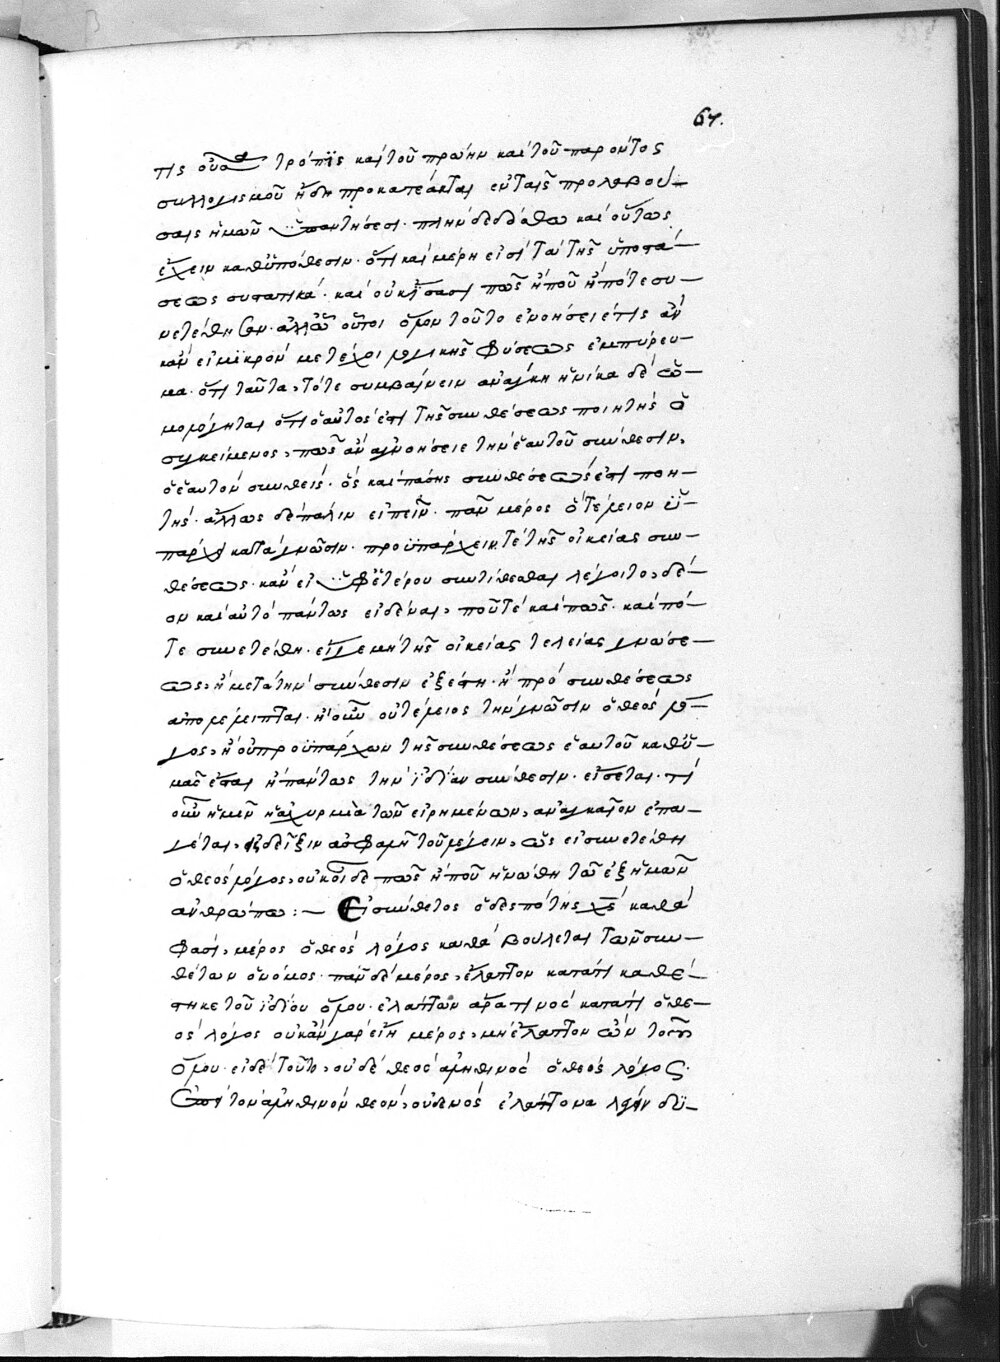 67.
τις οὖσα τρόπις καὶ τοῦ πρώην καὶ τοῦ παρόντος
συλλογισμοῦ ἤδη προκατέακται ἐν ταῖς προλαβού-
σαις ἡμῶν ὑπαντήσεσι. πλὴν δεδόσθω καὶ οὕτως
ἔχειν καθ' ὑπόθεσιν. ὅτι καὶ μέρη εἰσὶ τὰ τῆς ὑποστά-
σεως συστατικά. καὶ οὐκ ἴσασι πῶς ἢ ποῦ ἢ πότε συ-
νετέθησαν. ἀλλ' οὔτοι ὅμον τοῦτο ἐννοήσειέ τις ἂν
κἂν εἰ μικρὸν μετέχοι λογικῆς φύσεως ἐμπύρευ-
μα. ὅτι ταῦτα, τότε συμβαίνειν ἀνάγκη ἡνίκα δὲ ὡ-
μολόγηται ὅτι ὁ αὐτός ἐστι τῆς συνθέσεως ποιητὴς ὁ
συγκείμενος, πῶς ἂν ἀγνοήσειε τὴν ἑαυτοῦ σύνθεσιν,
ὁ ἑαυτὸν συνθείς. ὃς καὶ πάσης συνθέσεώς ἐστι ποιη-
τής. ἄλλως δὲ πάλιν εἰπεῖν. πᾶν μέρος ὃ τέλειον ὑ-
πάρχει κατὰ γνῶσιν. προϋπάρχειν τε τῆς οἰκείας συν-
θέσεως. κἂν εἰ ὑφ' ἑτέρου συντίθεσθαι λέγοιτο, δέ-
ον καὶ αὐτὸ πάντως εἰδέναι, ποῦ τε καὶ πῶς. καὶ πό-
τε συνετέθη. εἴγε μὴ τῆς οἰκείας τελείας γνώσε-
ως, ἢ μετὰ τὴν σύνθεσιν ἐξέστη. ἢ πρὸ συνθέσεως
ἀπολέλειπται. ἢ οὖν οὐ τέλειος τὴν γνῶσιν ὁ θεὸς λό-
γος, ἢ οὐ προϋπάρχων τῆς συνθέσεως ἑαυτοῦ καθ' ὑ-
μᾶς ἔσται ἢ πάντως τὴν ἰδίαν σύνθεσιν. εἴσεται. τί
οὖν ἡμῖν ἡ αἰχμὴ μετὰ τῶν εἰρημένων, ἀναγκαῖον ἐπα-
γέται, ἀπόδειξιν ἀσφαλῆ τοῦ λέγειν, ὡς εἰ συνετέθη
ὁ θεὸς λόγος, οὐκ οἶδε πῶς ἢ ποῦ ἡνώθη τῷ ἐξ ἡμῶν
ἀνθρώπῳ :— Εἰ σύνθετος ὁ δεσπότης χς καθά
φασι, μέρος ὁ θεὸς λόγος καθὰ βούλεται τῶν συν-
θέτων ὁ νόμος. πᾶν δὲ μέρος, ἔλαττον κατά τι καθέ-
στηκε τοῦ ἰδίου ὅλου. ἐλάττων ἄρα τινὸς κατά τι ὁ θε-
ὸς λόγος οὐκ ἂν γὰρ εἴη μέρος, μὴ ἔλαττον ὢν τοῦ
ὅλου. εἰ δὲ τοῦτο, οὐδὲ θεὸς ἀληθινὸς ὁ θεὸς λόγος.
τὸν ἀληθινὸν θεόν, οὐδενὸς ἐλάττονα λέγειν δύ-